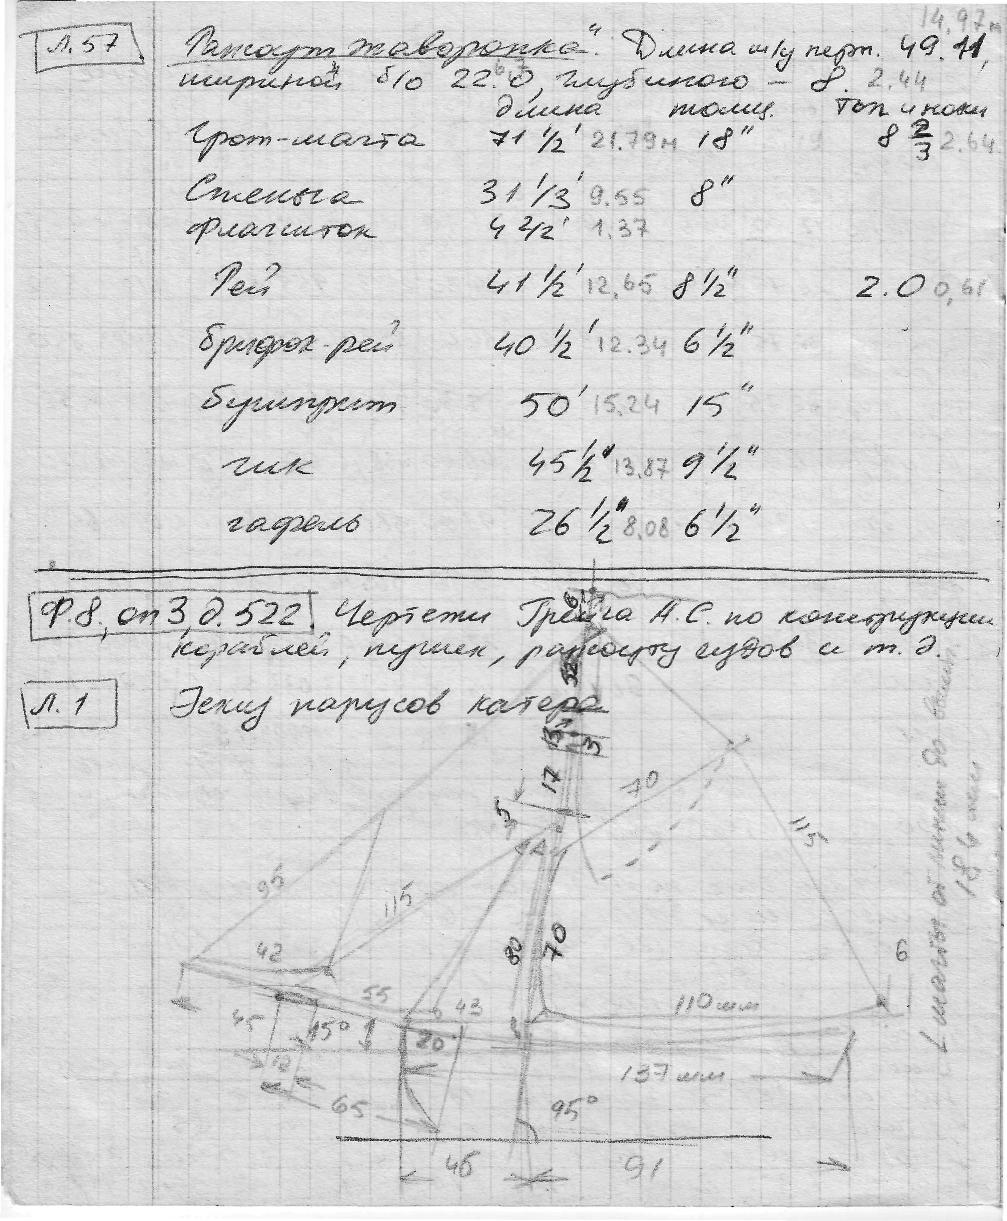 14,97м
Л.57 Рангоут „Жаворонка". Длина м/у перп. 49.11,
шириной б/о 22.0, глубиного – 8. 2.44
длина толщ. топ и ноки
Грот-мачта 71 1/2' 21.79м 18" 8 2/3 2.64
Стеньга 31 1/3' 9.55 8"
Флагшток 4 1/2' 1.37
Рей 41 1/2' 12,65 8 1/2" 2.0 0,61
брифок-рей 40 1/2' 12.34 6 1/2"
бушприт 50' 15,24 15"
гик 45 1/2" 13.87 9 1/2"
гафель 26 1/2" 8,08 6 1/2"
Ф.8, оп 3, д.522 Чертежи Грейга А.С. по конструкции
кораблей, пушек, рангоуту судов и т.д.
Л.1 Эскиз парусов катера
6
32
13
3
17
5
70
115
95
115
42
80
70
6
55
43
110 мм
45
15°
20
12
137 мм
65
95°
46
91
L мачты от линии до
184 мм